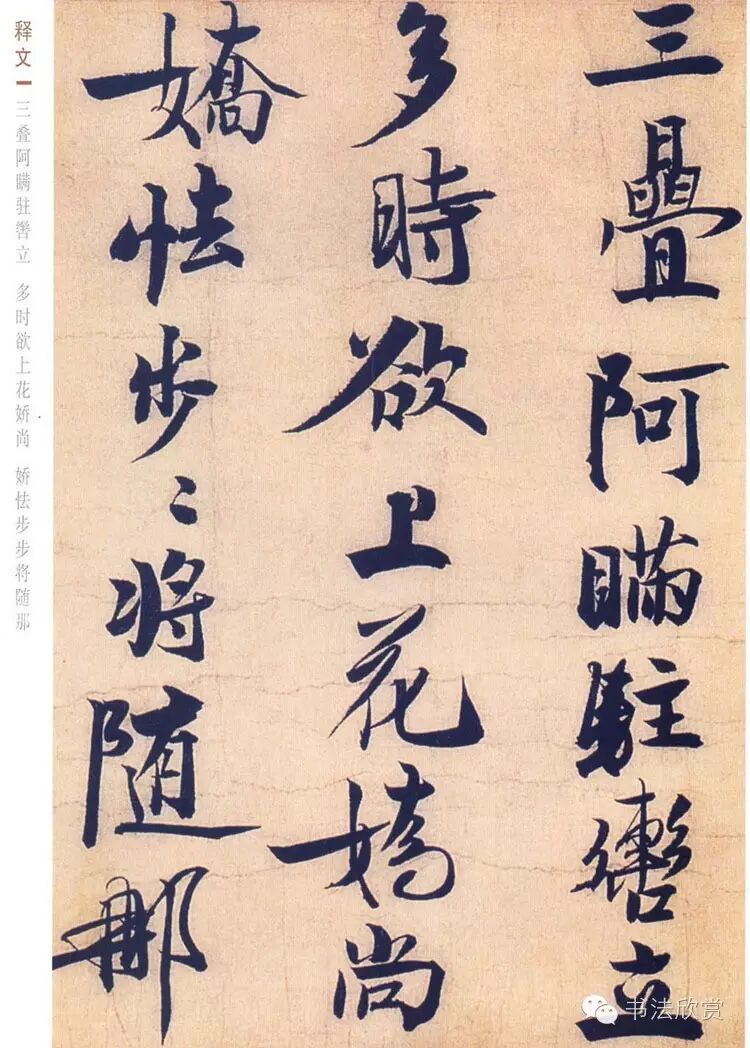 释文
三叠阿瞒驻辔立 多时欲上花娇尚 娇怯步步将随那
三疊阿瞞駐轡立
多時欲上花嬌尚
嬌怯步〻将随那
书法欣赏